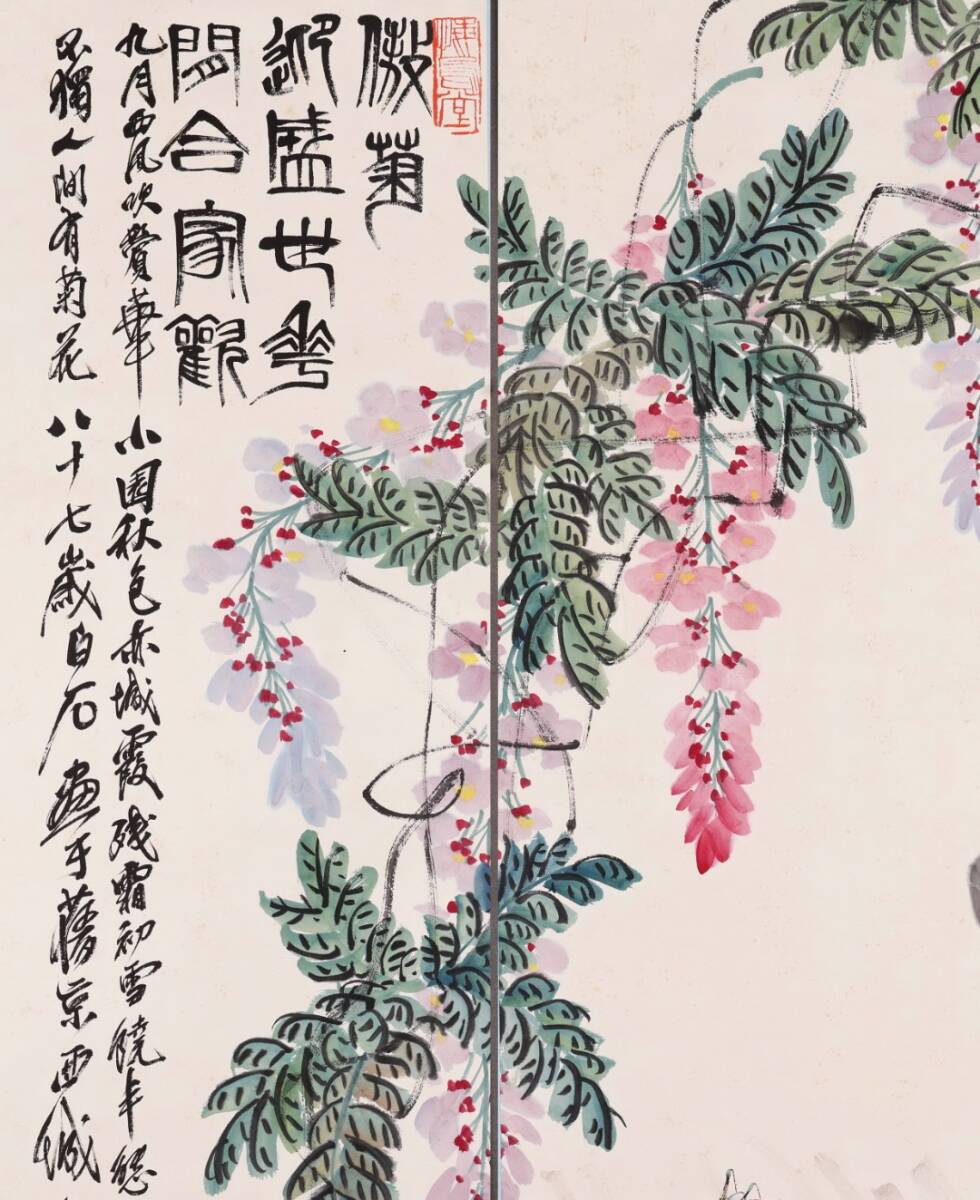 傲菊
迎盛世華
開合家歡
九月西風吹鬢華 小園秋色赤城霞 殘霜初雪饒丰態
不獨人間有菊花 八十七歲白石畫于舊京西城